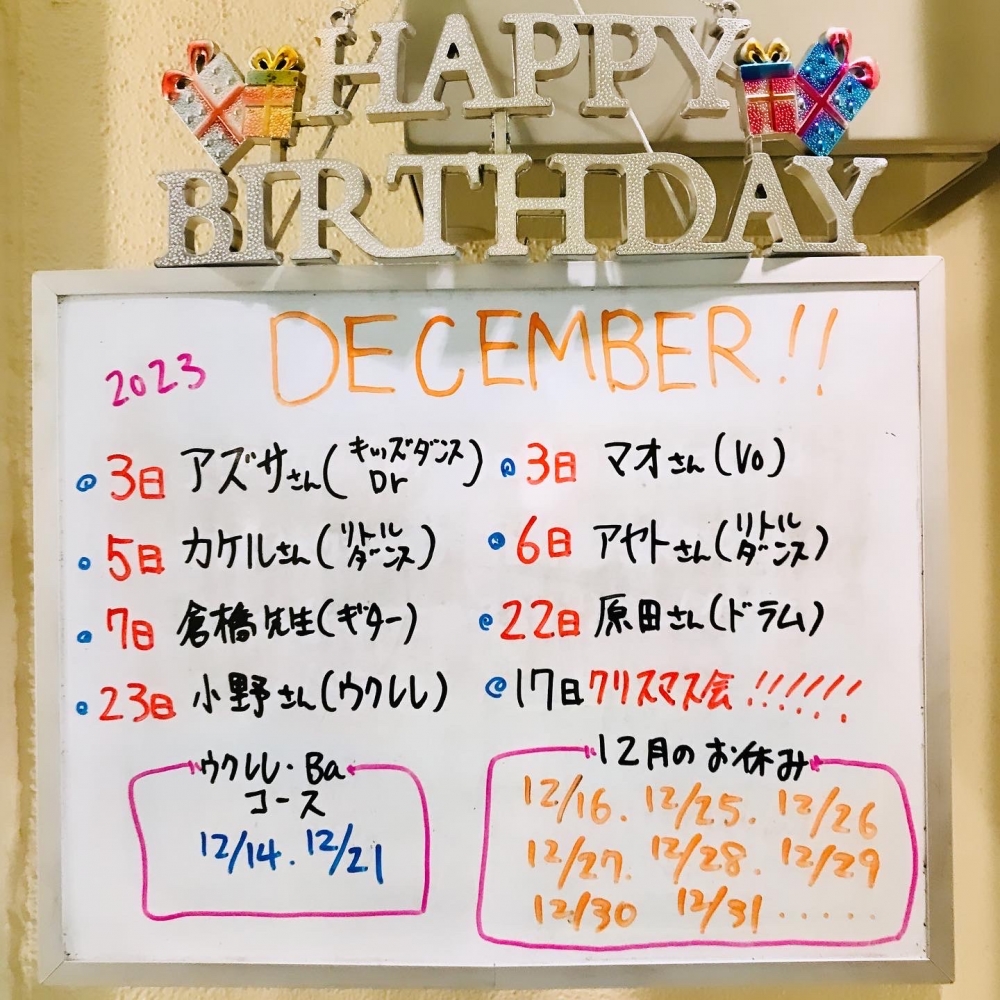 HAPPY
BIRTHDAY
2023 DECEMBER!!
3日 アズサさん(キッズダンス Dr)
3日 マオさん(Vo)
5日 カケルさん(リトルダンス)
6日 アヤトさん(リトルダンス)
7日 倉橋先生(ギター)
22日 原田さん(ドラム)
23日 小野さん(ウクレレ)
17日 クリスマス会!!!!!!
ウクレレ・Ba
コース
12/14. 12/21
12月のお休み
12/16. 12/25. 12/26
12/27. 12/28. 12/29
12/30 12/31 ......